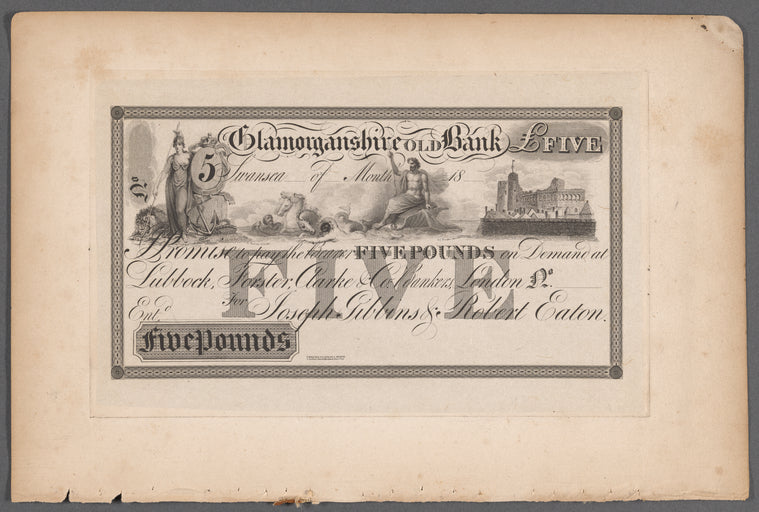 Glamorganshire OLD Bank £FIVE
5
No
Swansea of Month 18
I Promise to pay the Bearer FIVE POUNDS on Demand at
Lubbock, Forster, Clarke & Co. Bankers, London No.
FIVE
Entd.
For Joseph Gibbins & Robert Eaton.
Five Pounds